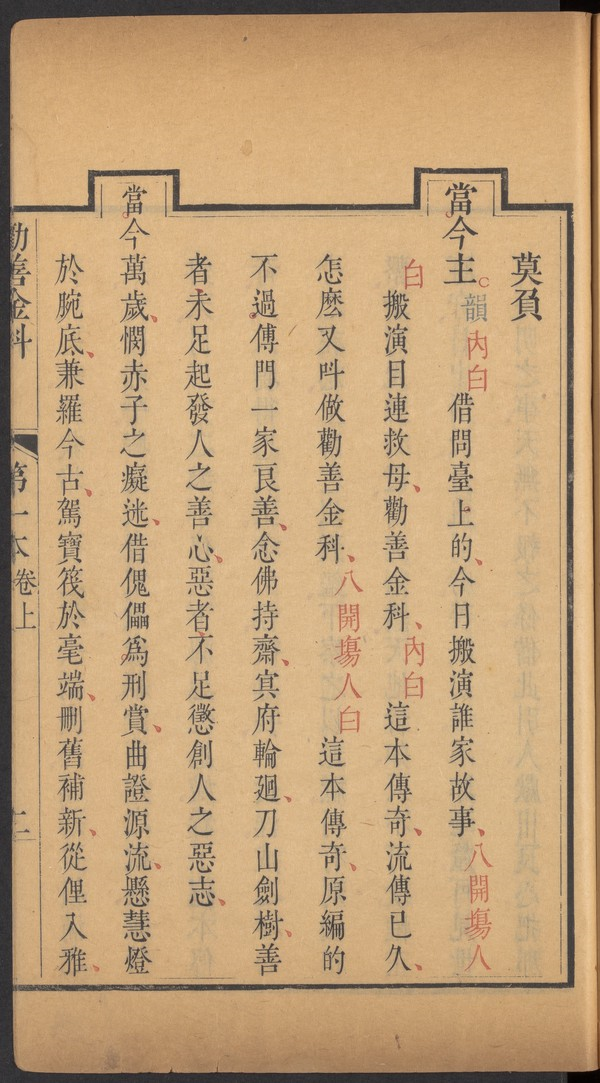 莫負
當今主。韻內白借問臺上的、今日搬演誰家故事、八開塲人
白搬演目連救母、勸善金科、內白這本傳奇、流傳已久、
怎麽又呌做勸善金科、八開塲人白這本傳奇、原編的
不過傅門一家良善、念佛持齋、冥府輪廻、刀山劍樹、善
者未足起發人之善心、惡者不足懲創人之惡志、
當今萬歲、憫赤子之癡迷、借傀儡爲刑賞、曲證源流、懸慧燈
於腕底、兼羅今古、駕寶筏於毫端、刪舊補新、從俚入雅、
勸善金科 第一本卷上 二